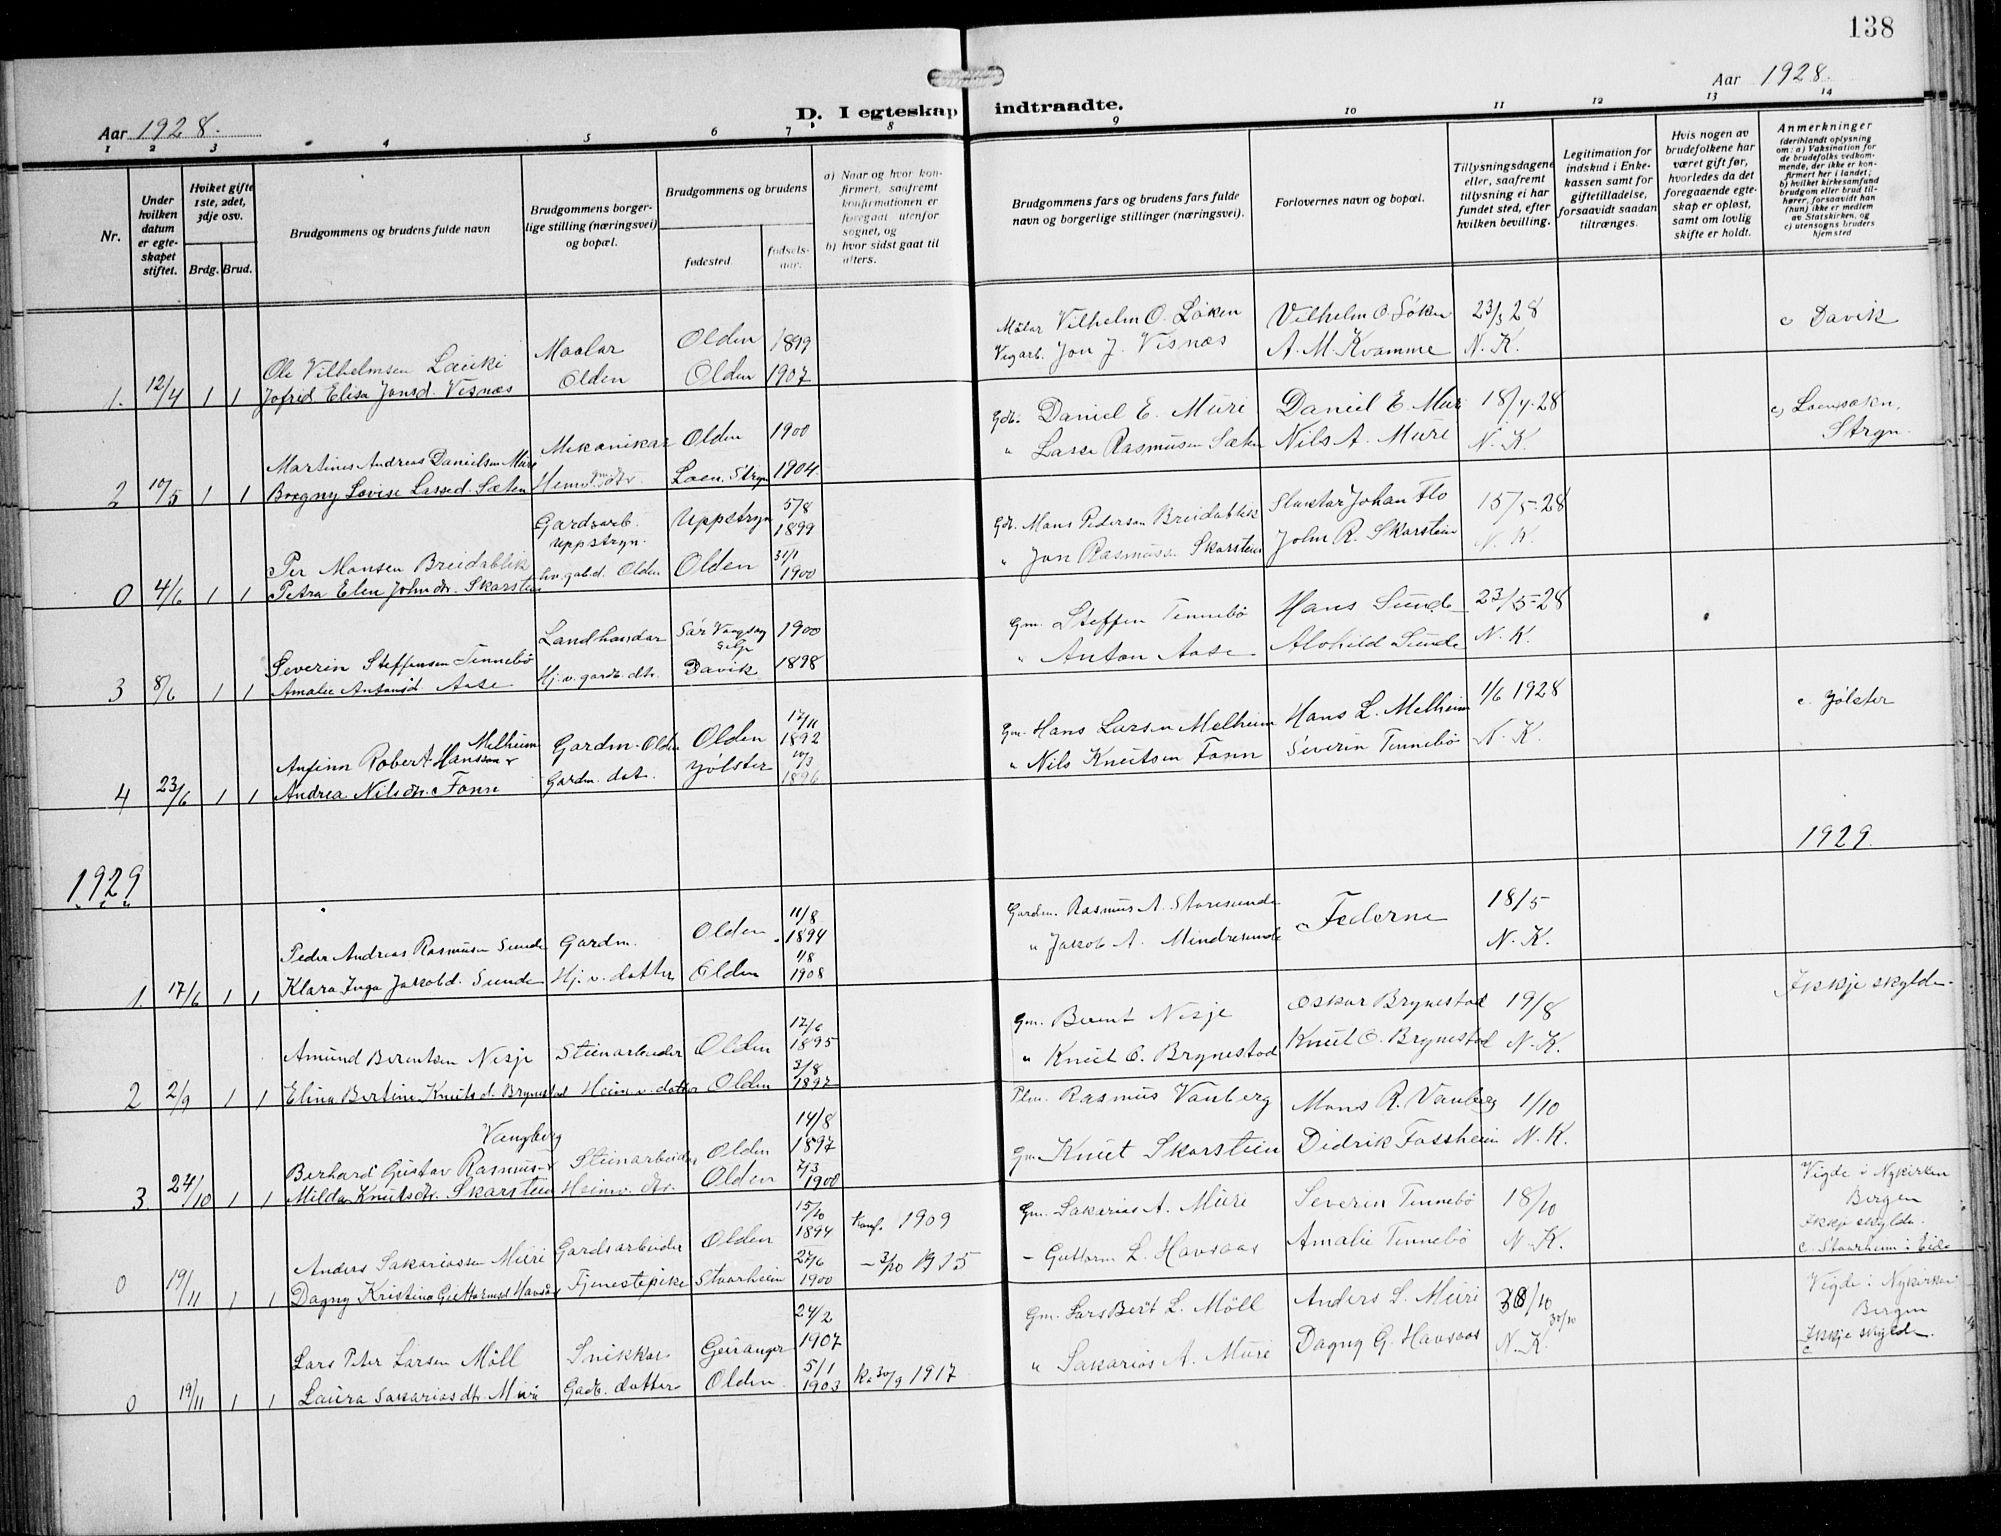 138
Aar 1928.
D. I egteskap indtraadte.
Aar 1928.
1 2 3 4 5 6 7 8 9 10 11 12 13 14
Nr.
Under hvilken datum er egteskapet stiftet.
Hviket gifte 1ste, 2det, 3dje osv.
Brdg. Brud.
Brudgommens og brudens fulde navn
Brudgommens borgerlige stilling (næringsvei) og bopæl.
Brudgommens og brudens
fødested.
fødselsaar.
a) Naar og hvor konfirmert, saafremt konfirmationen er foregaat utenfor sognet, og
b) hvor sidst gaat til alters.
Brudgommens fars og brudens fars fulde navn og borgerlige stillinger (næringsvei).
Forlovernes navn og bopæl.
Tillysningsdagene eller, saafremt tillysning ei har fundet sted, efter hvilken bevilling.
Legitimation for indskud i Enkekassen samt for giftetilladelse, forsaavidt saadan tiltrænges.
Hvis nogen av brudefolkene har været gift før, hvorledes da det foregaaende egteskap er opløst, samt om lovlig skifte er holdt.
Anmerkninger (deriblandt oplysning om: a) Vaksination for de brudefolks vedkommende, der ikke er konfirmert her i landet; b) hvilket kirkesamfund brudgom eller brud tilhører, forsaavidt han (hun) ikke er medlem av Statskirken, og c) utensogns bruders hjemsted
Ole Vilhelmsen Lauki Maalar Olden 1899 Målar Vilhelm O. Løken Vilhelm O Løken 23/3 28 c Davik
1. 12/4 1 1 Jofrid Elisa Jonsd. Visnæs Olden Olden 1907 Vegarb. Jon J. Visnæs A. M. Kvamme N. K.
Martines Andreas Danielsen Muri Mekanikar Olden 1900 Gdb. Daniel E. Muri Daniel E Muri 18/4-28 c, Loensokn,
2 10/5 1 1 Borgny Lovise Lassed. Sæten Loen. Stryn 1904 " Lasse Rasmusen Sæten Nils A. Muri N. K. Stryn.
Per Monsen Breidablik Gardsarb. Uppstryn. Uppstryn 5/8 1899 Gdb. Mons Pederson Breidablik Johan Flo 15/5-28
0 4/6 1 1 Petra Elen Johndr. Skarstein Olden Olden 31/1 1900 " Jon Rasmuss. Skarstein John R. Skarstein N. K.
Severin Steffensen Tennebø Landhandlar Sør Vaagsøy Selje 1900 Gm. Steffen Tennebø Hans Sunde 23/5-28
3 8/6 1 1 Amalie Antonsd. Aase Hj. v. gardb. dtr. Davik 1898 " Anton Aase Alvhild Sunde N. K.
Anfinn Robert Hansson Melheim Gardm. Olden Olden 17/11 1892 Gm. Hans Larsen Melheim Hans L. Melheim 1/6 1928 c. Jølster
4 23/6 1 1 Andrea Nilsdtr. Fonn Gardm. dot. Jølster 10/3 1896 " Nils Knutsen Fonn Severin Tennebø N. K.
1929 1929.
Peder Andreas Rasmusen Sunde Gardm. Olden 11/8 1894 Gardm. Rasmus A. Storesunde Federne 18/5
1 17/6 1 1 Klara Inga Jakobd. Sunde Hj. v. dotter Olden 1/8 1908 " Jakob A. Mindresunde N. K.
Amund Berentsen Nesje Steinarbeider Olden 12/6 1895 Gm. Berent Nesje Oskar Brynestad 19/8 Ikkje skylde.
2 2/9 1 1 Elina Bertine Knutsd. Brynestad Heimev. dotter Olden 3/8 1897 " Knut O. Brynestad Knut O. Brynestad N. K.
Berhard Gustav Rasmus. Vangberg Steinarbeider Olden 14/8 1897 Plm. Rasmus Vanberg Mons R. Vanberg 1/10
3 24/10 1 1 Milda Knutsdtr. Skarstein Heimv. dtr. Olden 7/3 1900 Gm. Knut Skarstein Didrik Fossheim N. K.
Anders Sakariassen Muri Gardsarbeider Olden 15/10 1894 konf. 1909 Gm. Sakarias A. Muri Severin Tennebø 18/10 Vigde i Nykirken Bergen Ikkje skylde.
0 19/11 1 1 Dagny Kristina Guttormsd Havsaas Tjenestepike Staarheim 27/6 1900 - 3/10 1915 - Guttorm L. Havsaas Amalie Tennebø N. K. c. Staarheim i Eid
Lars Peter Larsen Møll Snikkar Geiranger 24/2 1907 Gm. Lars Bert L. Møll Anders S. Muri 30/10 Vigde i Nykirken Bergen
0 19/11 1 1 Laura Sakariasdtr. Muri Gadb. dotter Olden 5/1 1903 k. 30/9 1917 " Sakarias A. Muri Dagny G. Havsaas N. K. Ikkje skylde.